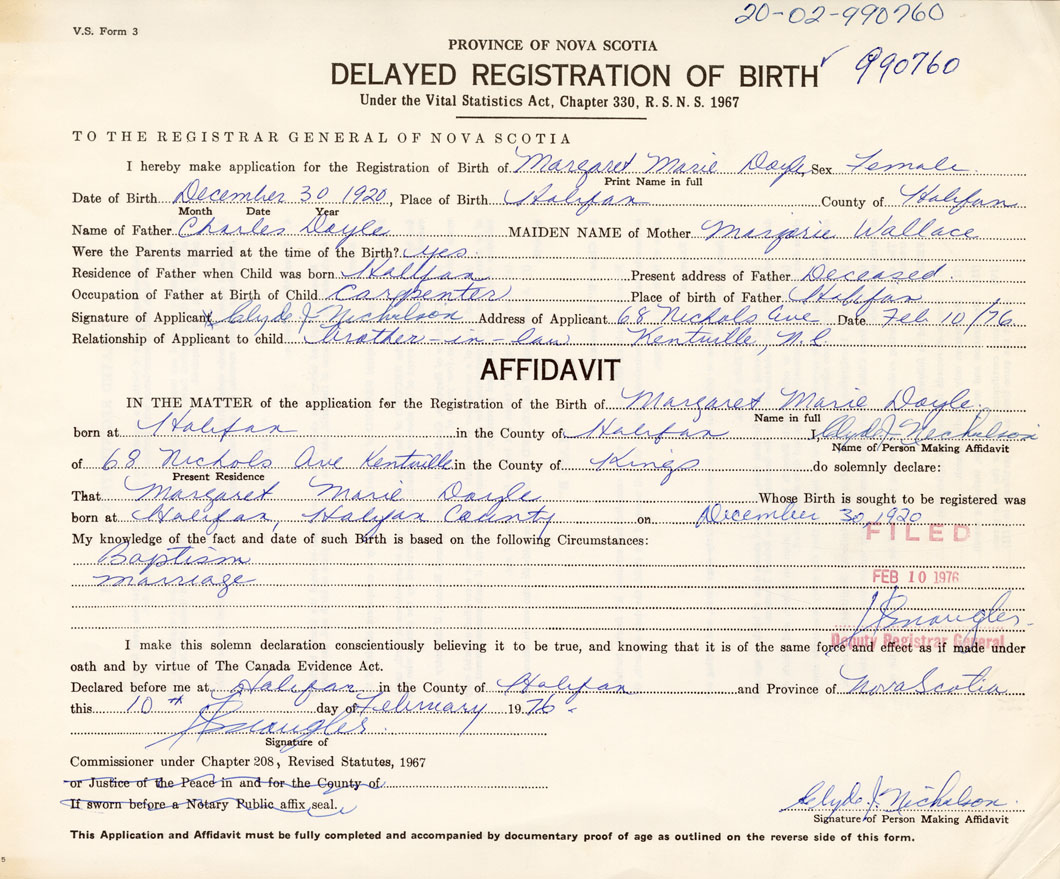 20-02-990760
V.S. Form 3
PROVINCE OF NOVA SCOTIA
DELAYED REGISTRATION OF BIRTH ✓ 990760
Under the Vital Statistics Act, Chapter 330, R. S. N. S. 1967
TO THE REGISTRAR GENERAL OF NOVA SCOTIA
I hereby make application for the Registration of Birth of Margaret Marie Doyle, Sex Female
Print Name in full
Date of Birth December 30 1920, Place of Birth Halifax County of Halifax
Month Date Year
Name of Father Charles Doyle MAIDEN NAME of Mother Marjorie Wallace
Were the Parents married at the time of the Birth? yes
Residence of Father when Child was born Halifax Present address of Father Deceased
Occupation of Father at Birth of Child Carpenter Place of birth of Father Halifax
Signature of Applicant Clyde J. Nicholson Address of Applicant 68 Nichols Ave Date Feb 10/76
Relationship of Applicant to child brother-in-law Kentville, N.S.
AFFIDAVIT
IN THE MATTER of the application for the Registration of the Birth of Margaret Marie Doyle
Name in full
born at Halifax in the County of Halifax I, Clyde J. Nicholson
Name of Person Making Affidavit
of 68 Nichols Ave Kentville in the County of Kings do solemnly declare:
Present Residence
That Margaret Marie Doyle Whose Birth is sought to be registered was
born at Halifax, Halifax County on December 30, 1920
FILED
My knowledge of the fact and date of such Birth is based on the following Circumstances:
Baptism
marriage
FEB 10 1976
Deputy Registrar General
I make this solemn declaration conscientiously believing it to be true, and knowing that it is of the same force and effect as if made under
oath and by virtue of The Canada Evidence Act.
Declared before me at Halifax in the County of Halifax and Province of Nova Scotia
this 10th day of February 1976.
Signature of
Commissioner under Chapter 208, Revised Statutes, 1967
or Justice of the Peace in and for the County of
If sworn before a Notary Public affix seal.
Clyde J. Nicholson
Signature of Person Making Affidavit
This Application and Affidavit must be fully completed and accompanied by documentary proof of age as outlined on the reverse side of this form.
5